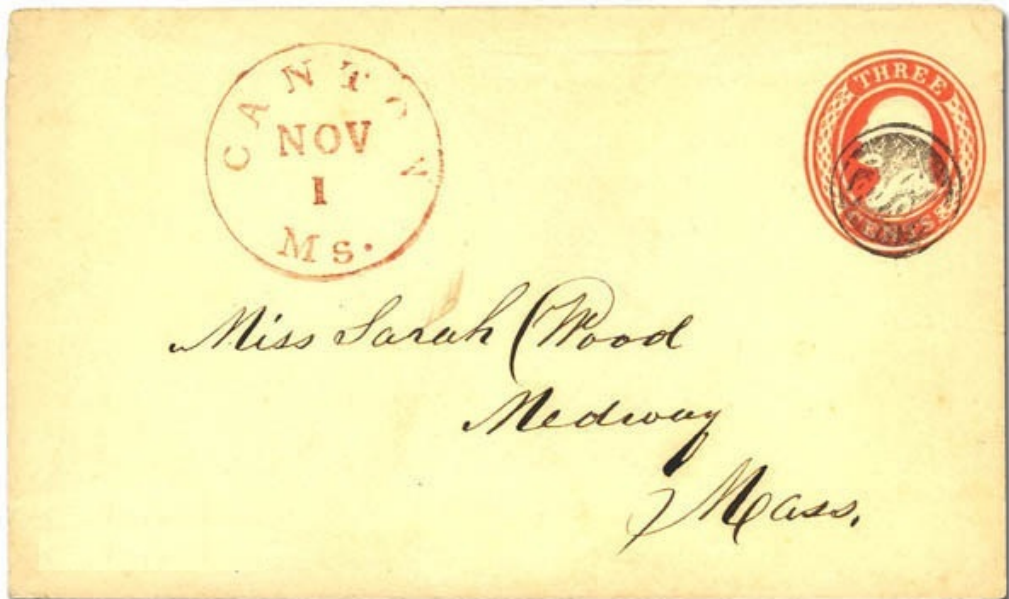 CANTON
NOV
1
Ms.
THREE
CENTS
Miss Sarah Wood
Medway
Mass.